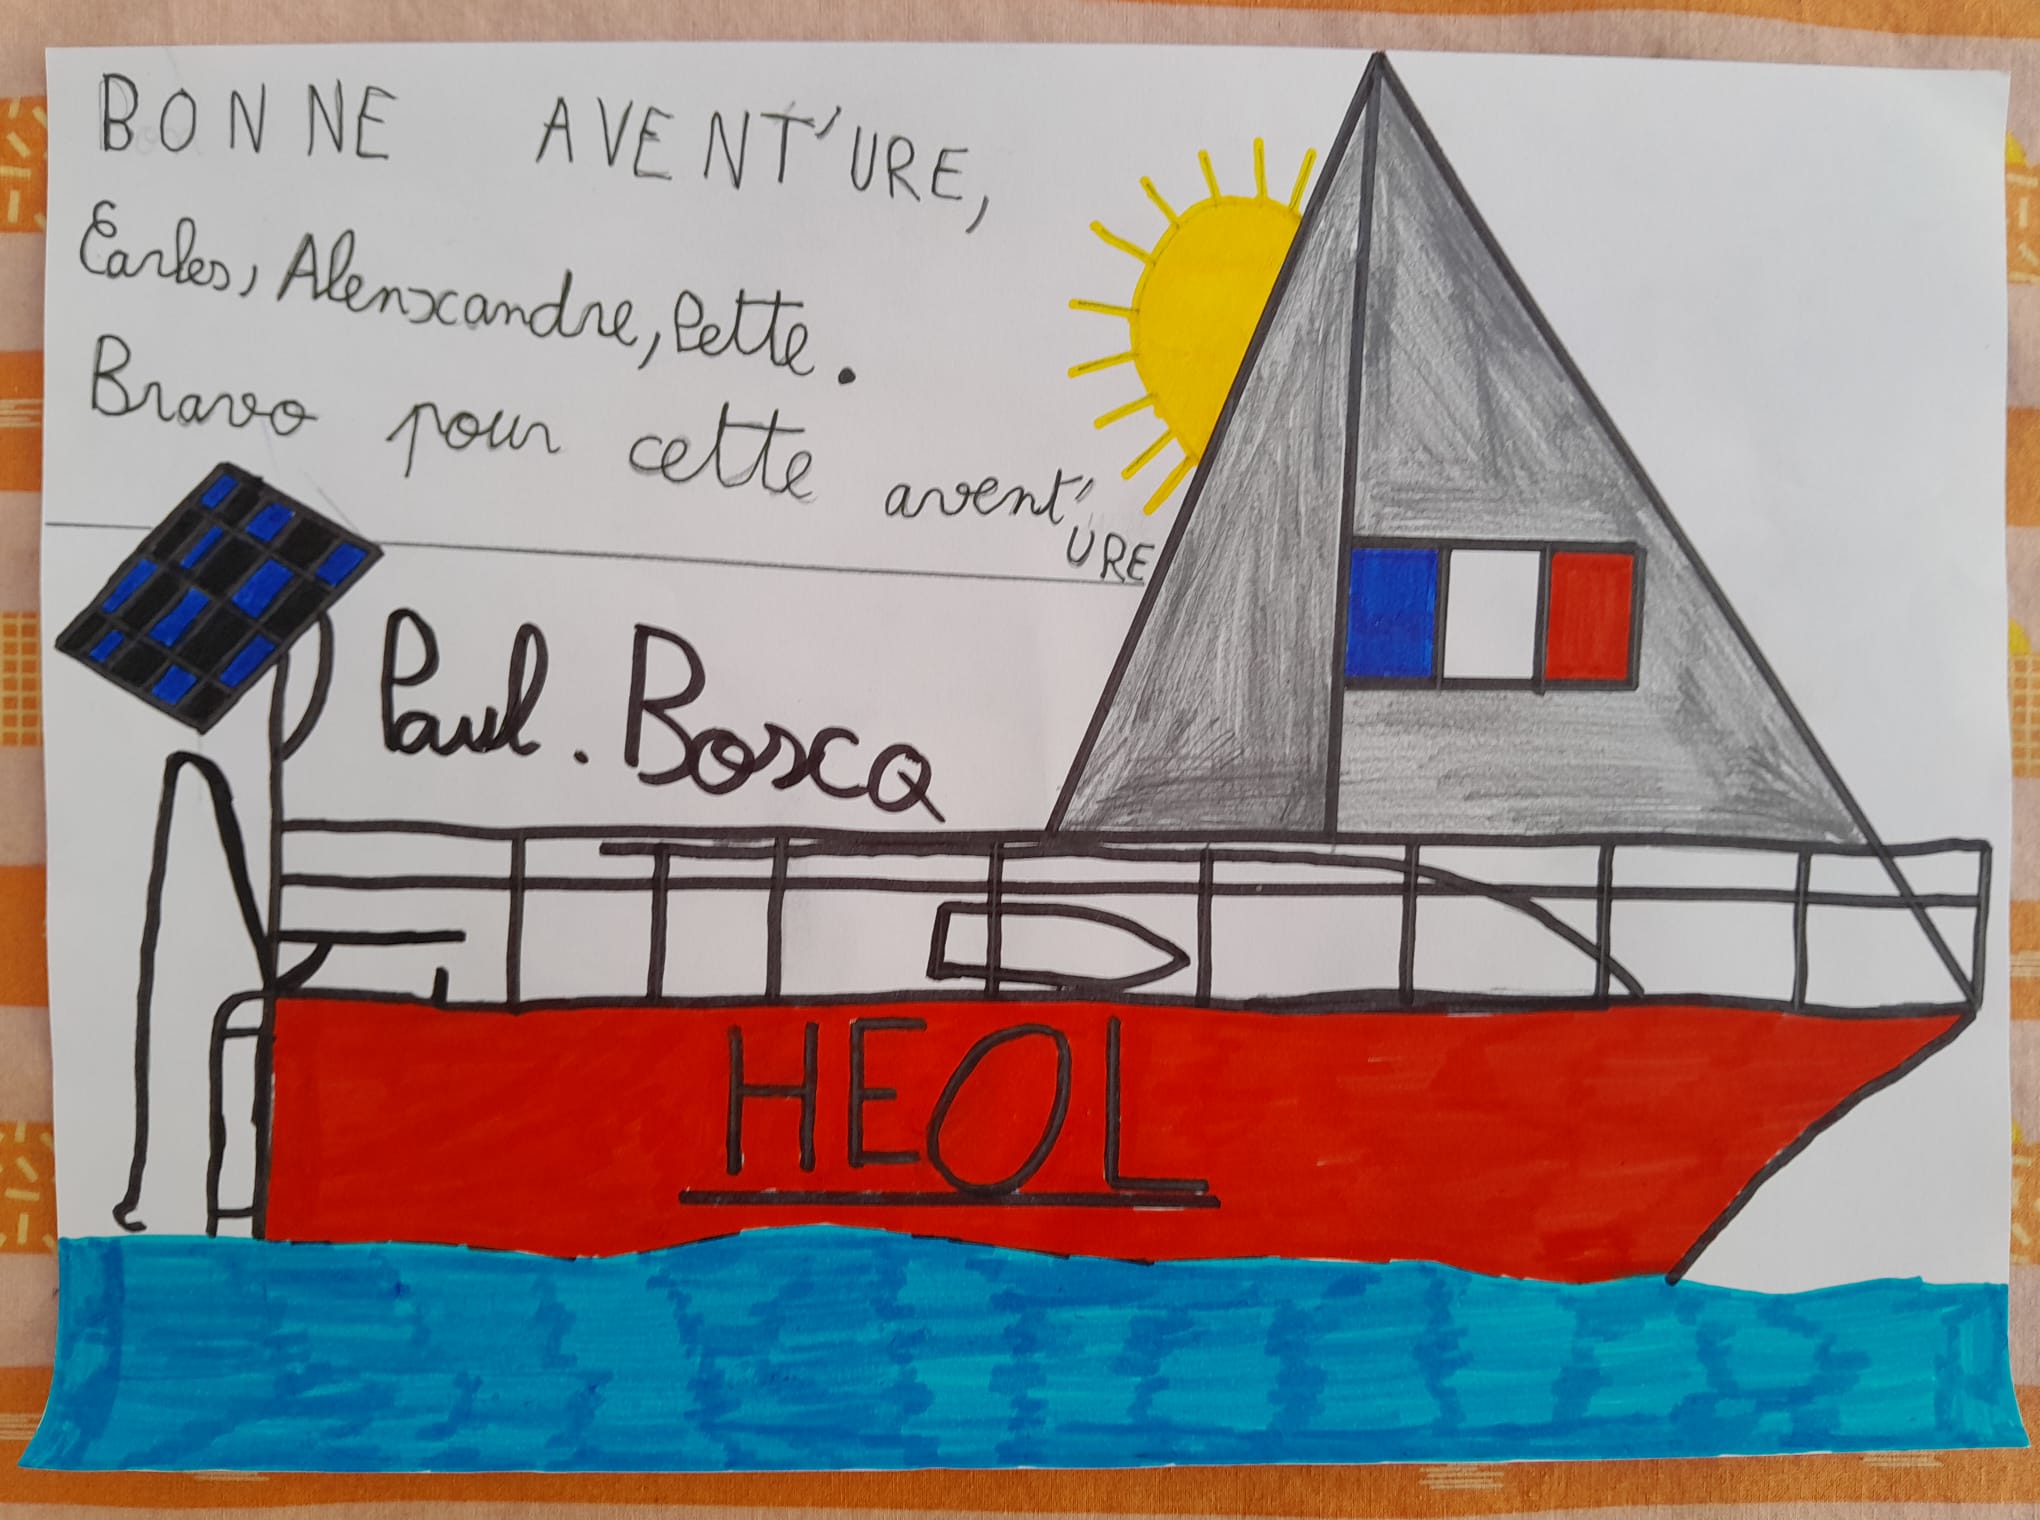 BONNE AVENT'URE,
Carles, Alenxcandre, Pette.
Bravo pour cette avent'
URE
Paul. Boscq
HEOL